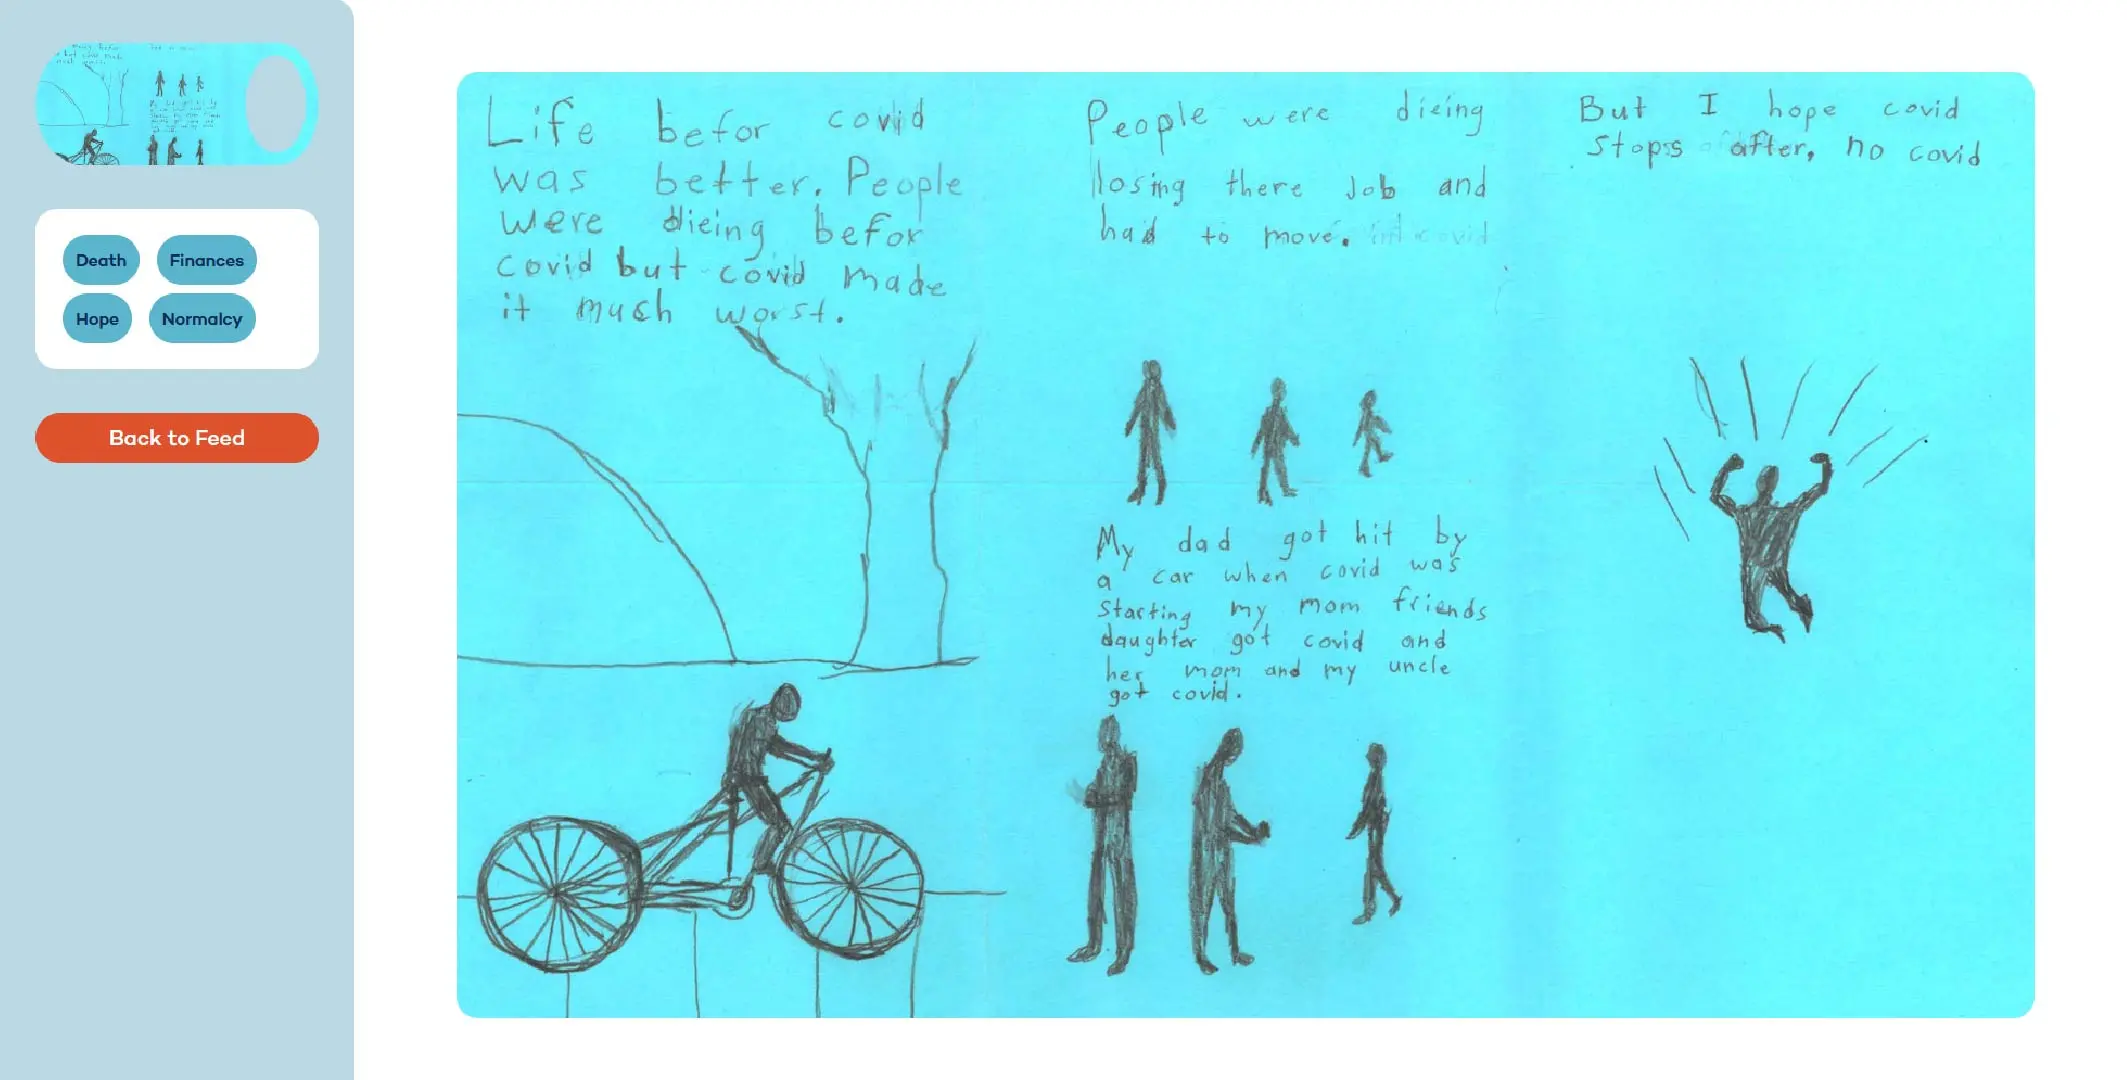 Death
Finances
Hope
Normalcy
Back to Feed
Life befor covid
was better. People
were dieing befor
covid but covid made
it much worst.
People were dieing
losing there Job and
had to move.
My dad got hit by
a car when covid was
starting my mom friends
daughter got covid and
her mom and my uncle
got covid.
But I hope covid
stops after, no covid